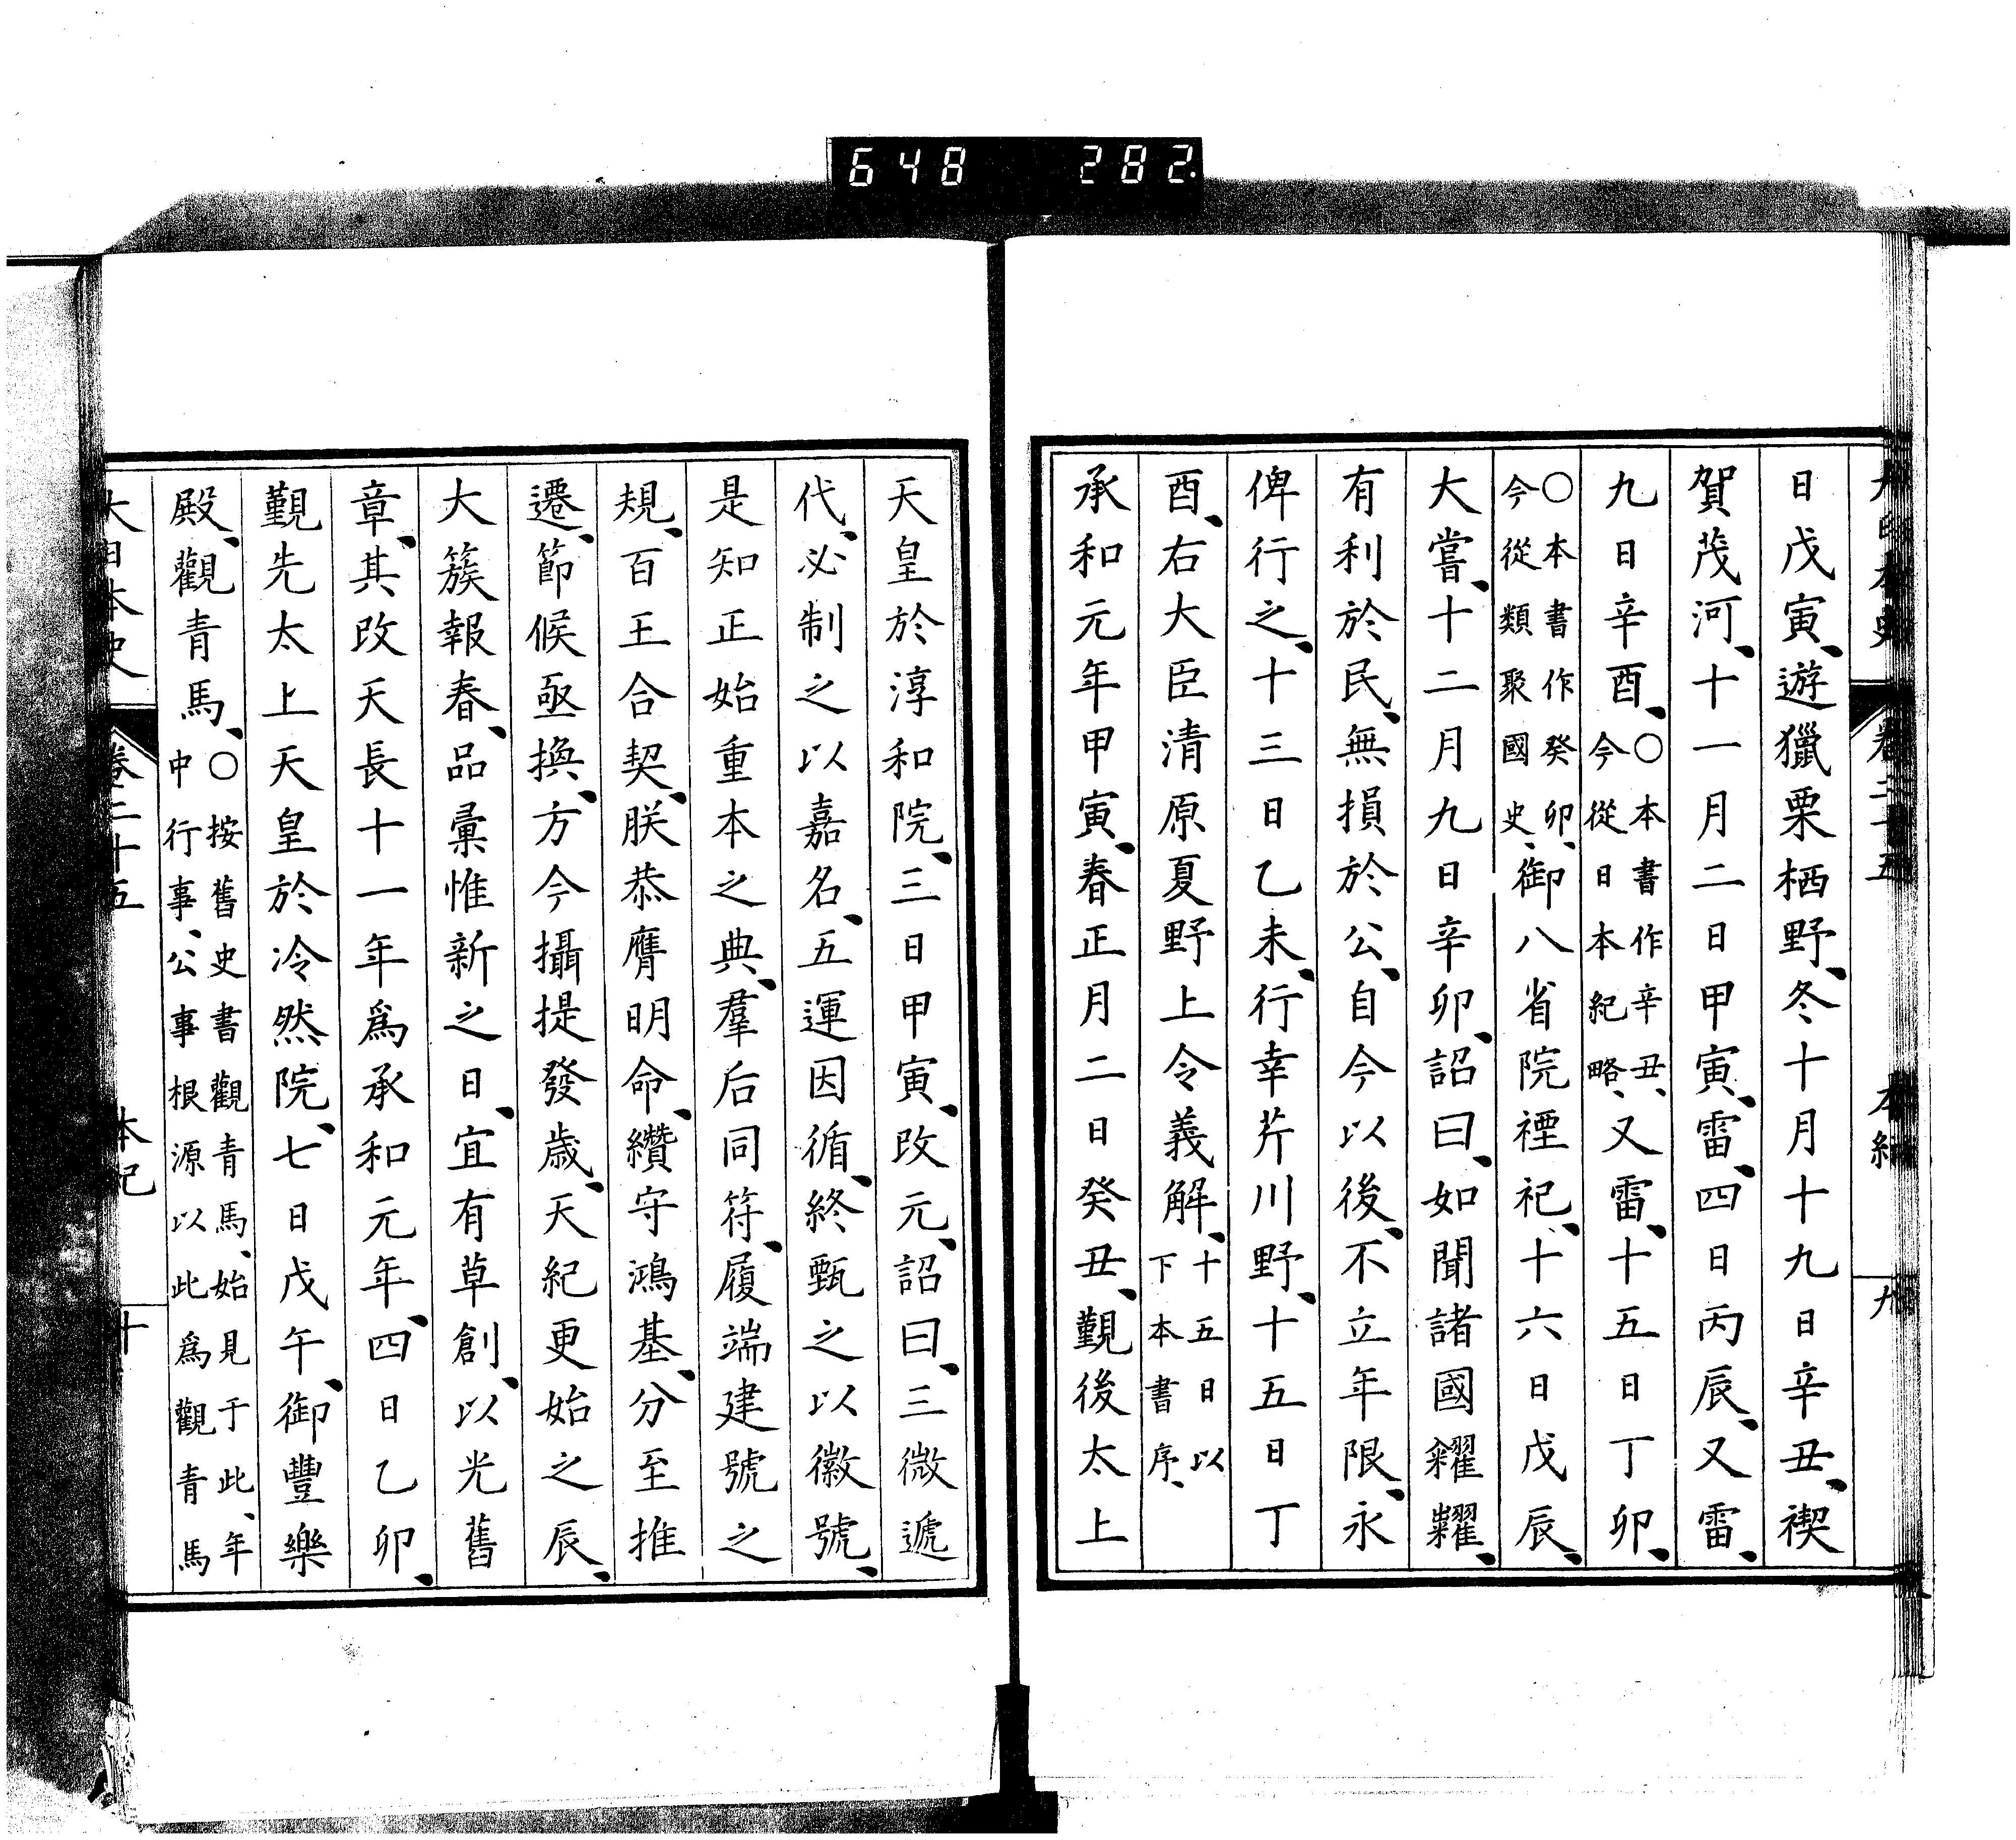 648 282
大日本史 卷二十五 本紀 九
日戊寅、遊獵栗栖野、冬十月十九日辛丑、禊
賀茂河、十一月二日甲寅、雷、四日丙辰、又雷、
九日辛酉、○本書作辛丑、今從日本紀略、又雷、十五日丁卯、
○本書作癸卯、今從類聚國史、御八省院禋祀、十六日戊辰、
大嘗、十二月九日辛卯、詔曰、如聞諸國糴糶、
有利於民、無損於公、自今以後、不立年限、永
俾行之、十三日乙未、行幸芹川野、十五日丁
酉、右大臣清原夏野上令義解、十五日以下本書序、
承和元年甲寅、春正月二日癸丑、覲後太上
天皇於淳和院、三日甲寅、改元、詔曰、三微遞
代、必制之以嘉名、五運因循、終甄之以徽號、
是知正始重本之典、羣后同符、履端建號之
規、百王合契、朕恭膺明命、纘守鴻基、分至推
遷、節候亟換、方今攝提發歲、天紀更始之辰、
大簇報春、品彙惟新之日、宜有草創、以光舊
章、其改天長十一年爲承和元年、四日乙卯、
覲先太上天皇於冷然院、七日戊午、御豐樂
殿、觀青馬、○按舊史書觀青馬、始見于此、年中行事、公事根源以此爲觀青馬
大日本史 卷二十五 本紀 十